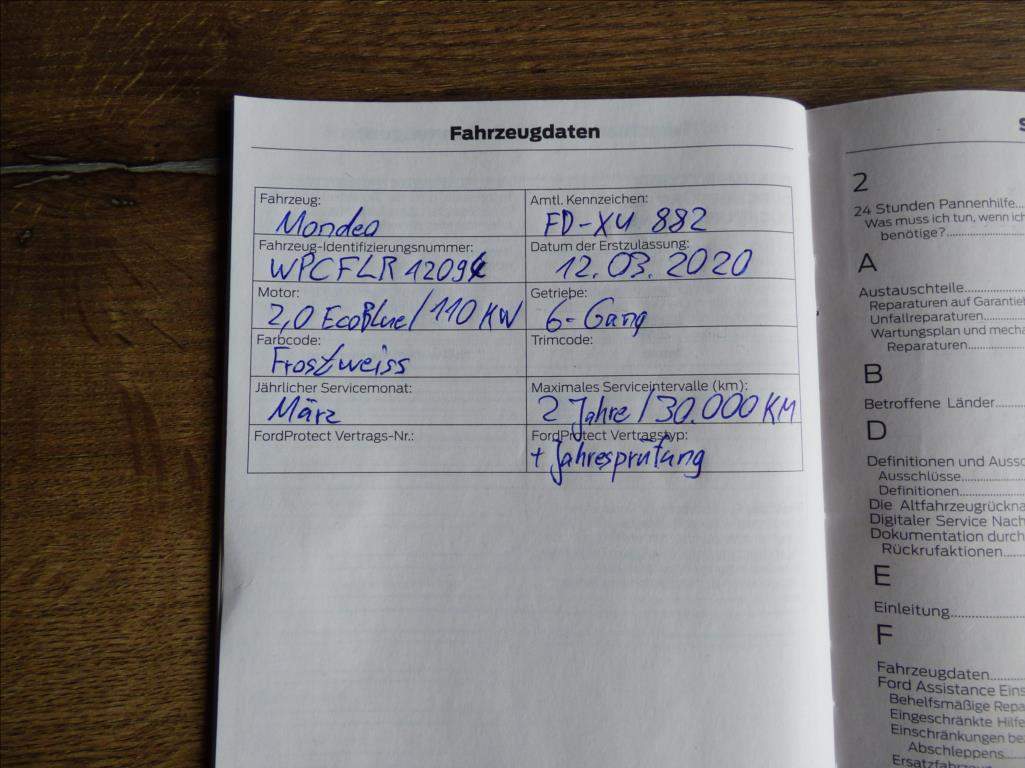 Fahrzeugdaten
Fahrzeug:
Mondeo
Amtl. Kennzeichen:
FD-XU 882
Fahrzeug-Identifizierungsnummer:
WPCFLR
Datum der Erstzulassung:
12.03.2020
Motor:
2,0 EcoBlue/110 KW
Getriebe:
6-Gang
Farbcode:
Frostweiss
Trimcode:
Jährlicher Servicemonat:
März
Maximales Serviceintervalle (km):
2 Jahre/30.000 KM
FordProtect Vertrags-Nr.:
FordProtect Vertragstyp:
+ Jahresprüfung
2
24 Stunden Pannenhilfe...
Was muss ich tun, wenn ich
benötige?...
A
Austauschteile...
Reparaturen auf Garantie
Unfallreparaturen...
Wartungsplan und mecha
Reparaturen...
B
Betroffene Länder...
D
Definitionen und Aussc
Ausschlüsse...
Definitionen...
Die Altfahrzeugrückna
Digitaler Service Nach
Dokumentation durch
Rückrufaktionen...
E
Einleitung...
F
Fahrzeugdaten...
Ford Assistance Eins
Behelfsmäßige Repa
Eingeschränkte Hilfe
Einschränkungen be
Abschleppens...